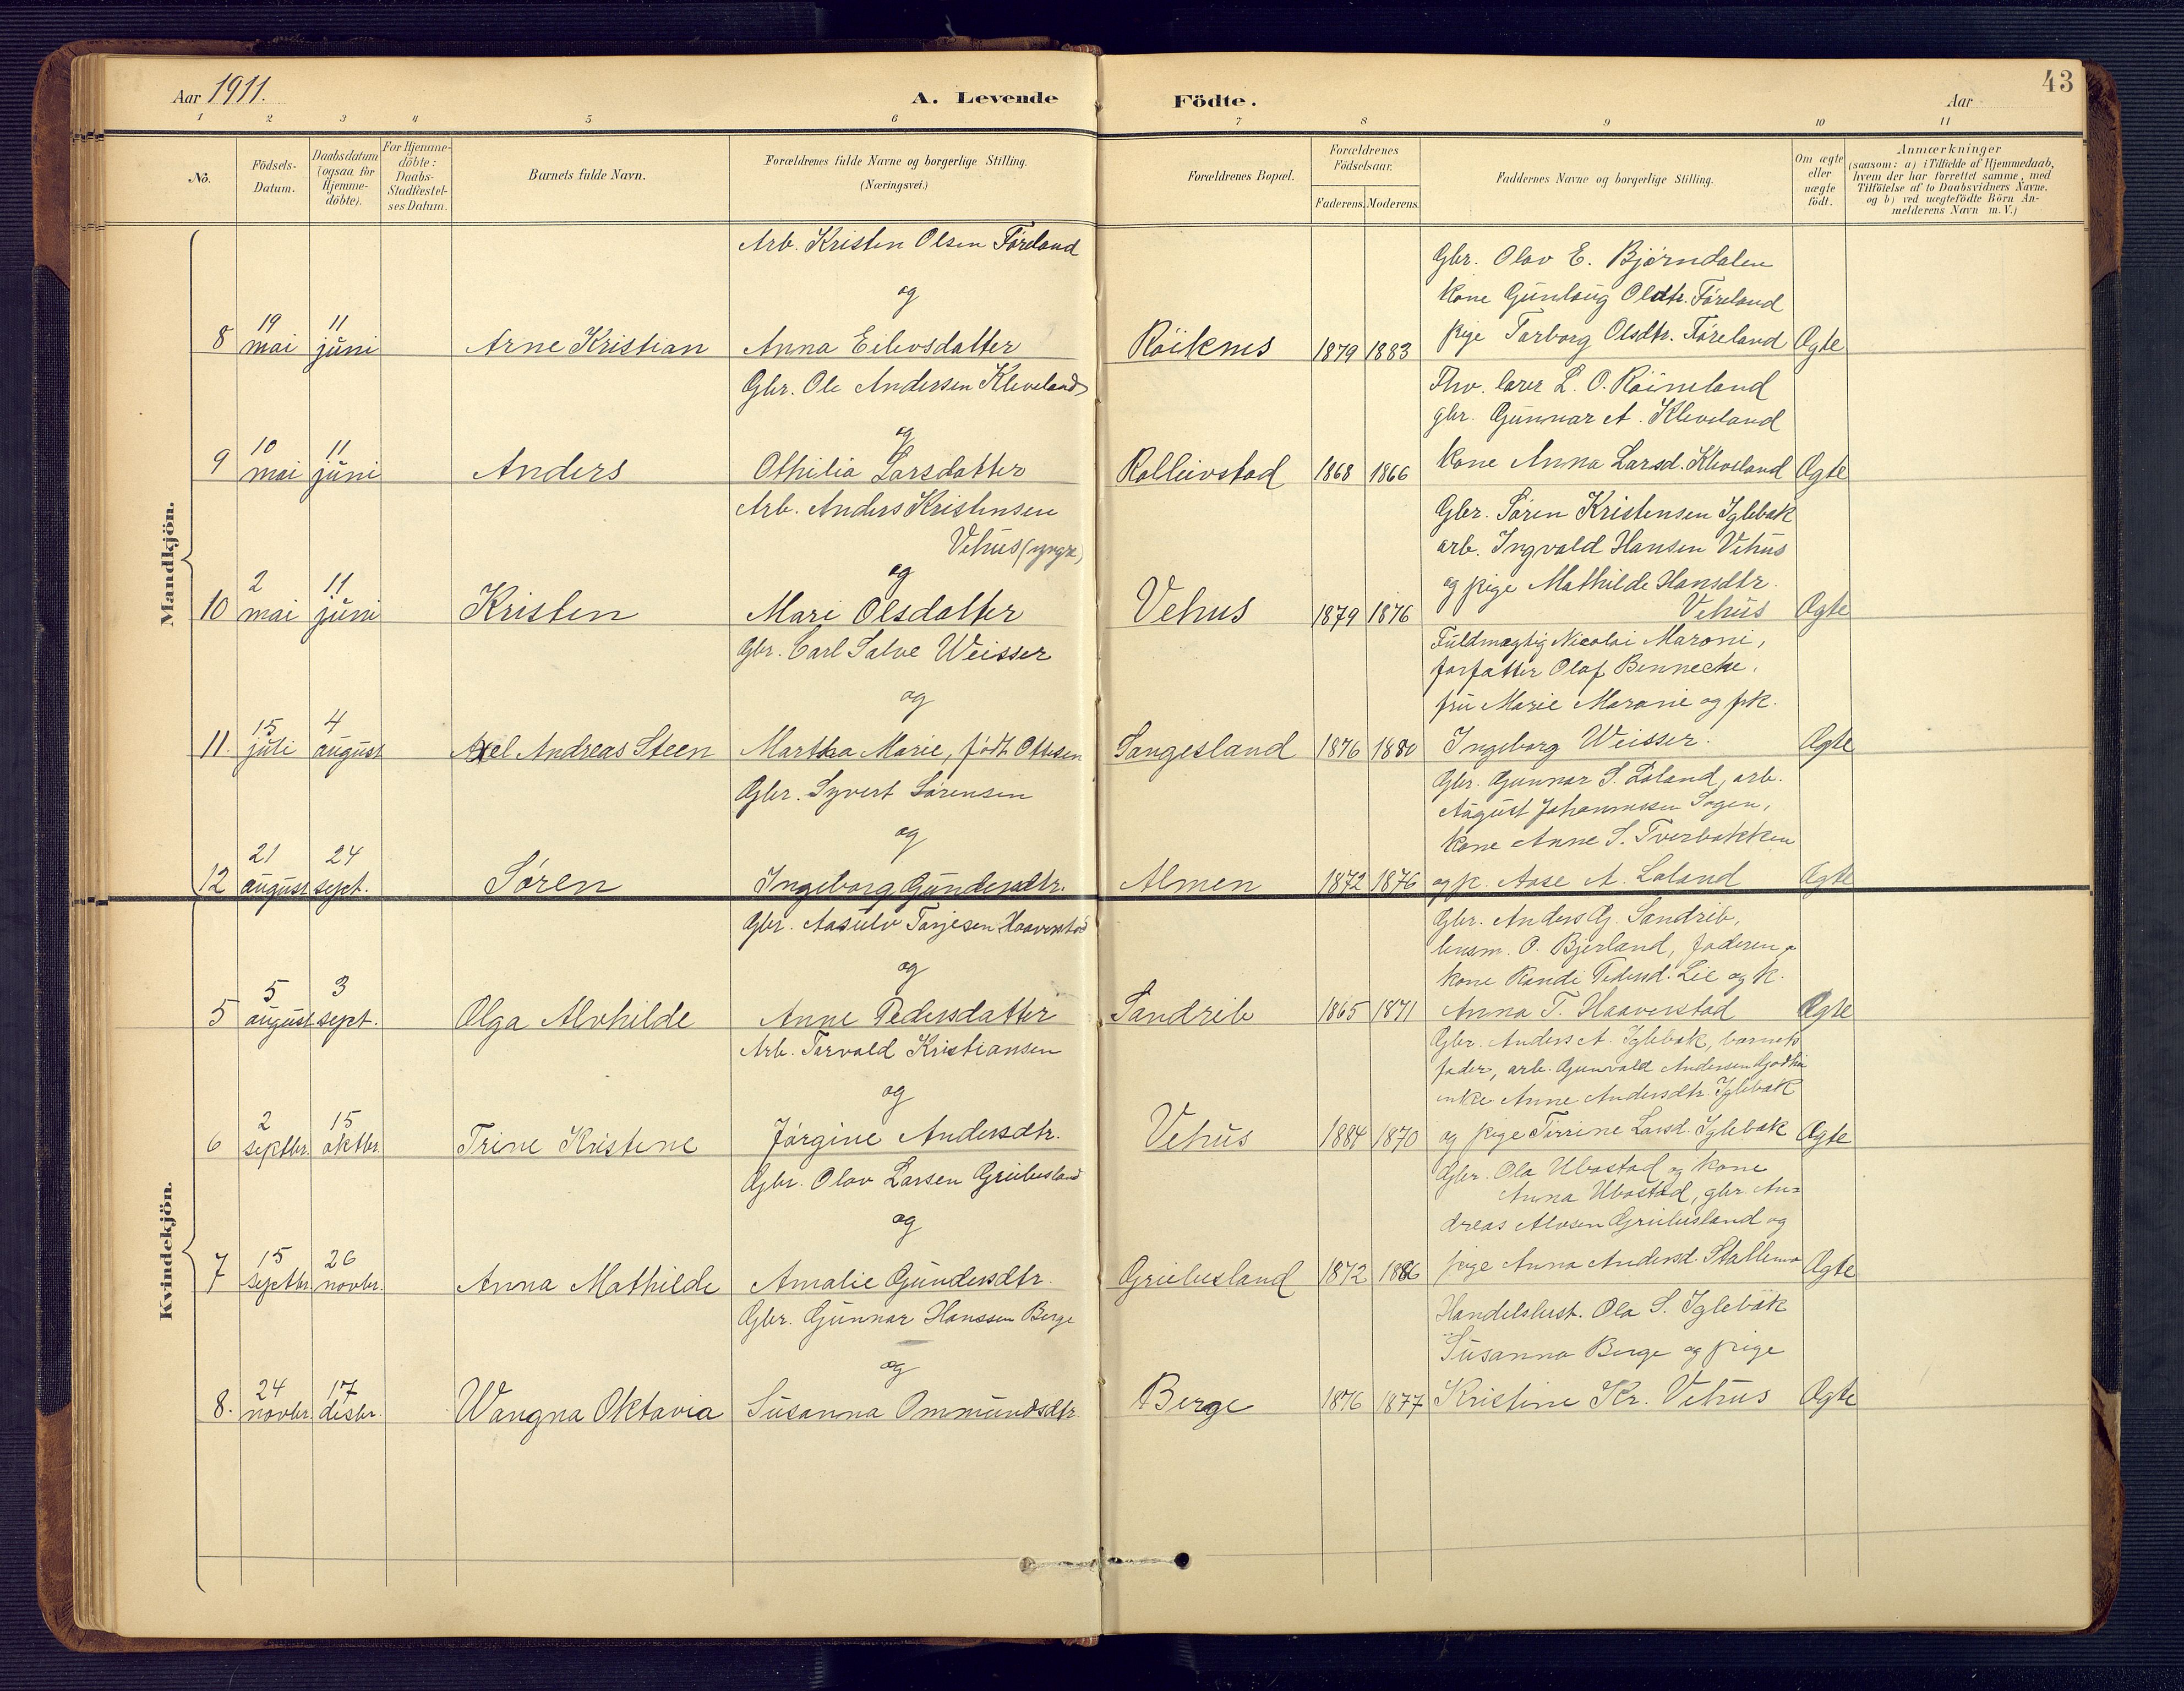 Aar 1911.
A. Levende Födte.
Aar
43
1 2 3 4 5 6 7 8 9 10 11
No.
Födsels-
Datum.
Daabsdatum
(ogsaa for
Hjemme-
döbte).
For Hjemme-
döbte:
Daabs-
Stadfæstel-
ses Datum.
Barnets fulde Navn.
Forældrenes fulde Navne og borgerlige Stilling.
(Næringsvei.)
Forældrenes Bopæl.
Forældrenes
Födselsaar.
Faderens. Moderens.
Faddernes Navne og borgerlige Stilling.
Om ægte
eller
uægte
födt.
Anmærkninger
(saasom: a) i Tilfælde af Hjemmedaab,
hvem der har forrettet samme, med
Tilföielse af to Daabsvidners Navne,
og b) ved uægtefödte Börn An-
melderens Navn m. V.)
Mandkjön.
Arb. Kristen Olsen Føreland
og
19 11
8 mai juni Arne Kristian Anna Eilevsdatter Röiknes 1879 1883
Gbr. Olav E. Bjørndalen
kone Gunlaug Oldtr. Føreland
pige Torborg Olsdtr. Føreland Ægte
Gbr. Ole Andersen Kleveland
og
10 11
9 mai juni Anders Othilia Larsdatter Rolleivstad 1868 1866
Fhv. lærer L. O. Röineland
gbr. Gunnar A. Kleveland
kone Anna Larsd. Kleveland Ægte
Arb. Anders Kristensen
Vehus (yngre)
og
2 11
10 mai juni Kristen Mari Olsdatter Vehus 1879 1876
Gbr. Sören Kristensen Iglebæk
arb. Ingvald Hansen Vehus
og pige Mathilde Hansdtr.
Vehus Ægte
Gbr. Carl Salve Weisser
og
15 4
11. juli august Axel Andreas Steen Martha Marie, född Ottesen Sangesland 1876 1880
Fuldmægtig Nicolai Maroni,
forfatter Olaf Benneche,
fru Marie Maroni og frk.
Ingeborg Weisser. Ægte
Gbr. Syvert Sørensen
og
21 24
12 august sept. Søren Ingeborg Gundersdtr. Almen 1872 1876
Gbr. Gunnar S. Loland, arb.
August Johannesen Sogen,
kone Anne S. Tverbakken
og p. Aase A. Loland Ægte
Kvindekjön.
Gbr. Aasulv Tarjesen Haaverstad
og
5 3
5 august sept. Olga Alvhilde Anne Pedersdatter Sandrib 1865 1871
Gbr. Anders G. Sandrib,
lensm. O. Bjerland, faderen,
kone Randi Pedersd. Lie og k.
Anna T. Haaverstad Ægte
Arb. Torvald Kristiansen
og
2 15
6 septbr. oktbr. Trine Kristine Jørgine Andersdtr. Vehus 1884 1870
Gbr. Anders A. Iglebæk, barnets
fader, arb. Gunvald Andersen
enke Anne Andersdtr. Iglebæk
og pige Larsd. Iglebæk Ægte
Gbr. Olav Larsen Griebesland
og
15 26
7 septbr. novbr. Anna Mathilde Amalie Gundersdtr. Griebesland 1872 1886
Gbr. Ola Ubostad og kone
Anna Ubostad, gbr. An-
dreas Alvsen Griebesland og
pige Anna Andersd. Stallemo Ægte
Gbr. Gunnar Hanssen Berge
og
24 17
8. novbr. desbr. Wangna Oktavia Susanna Ommundsdtr. Berge 1876 1877
Handelsbest. Ola S. Iglebæk
Susanna Berge og pige
Kristine Kr. Vehus Ægte